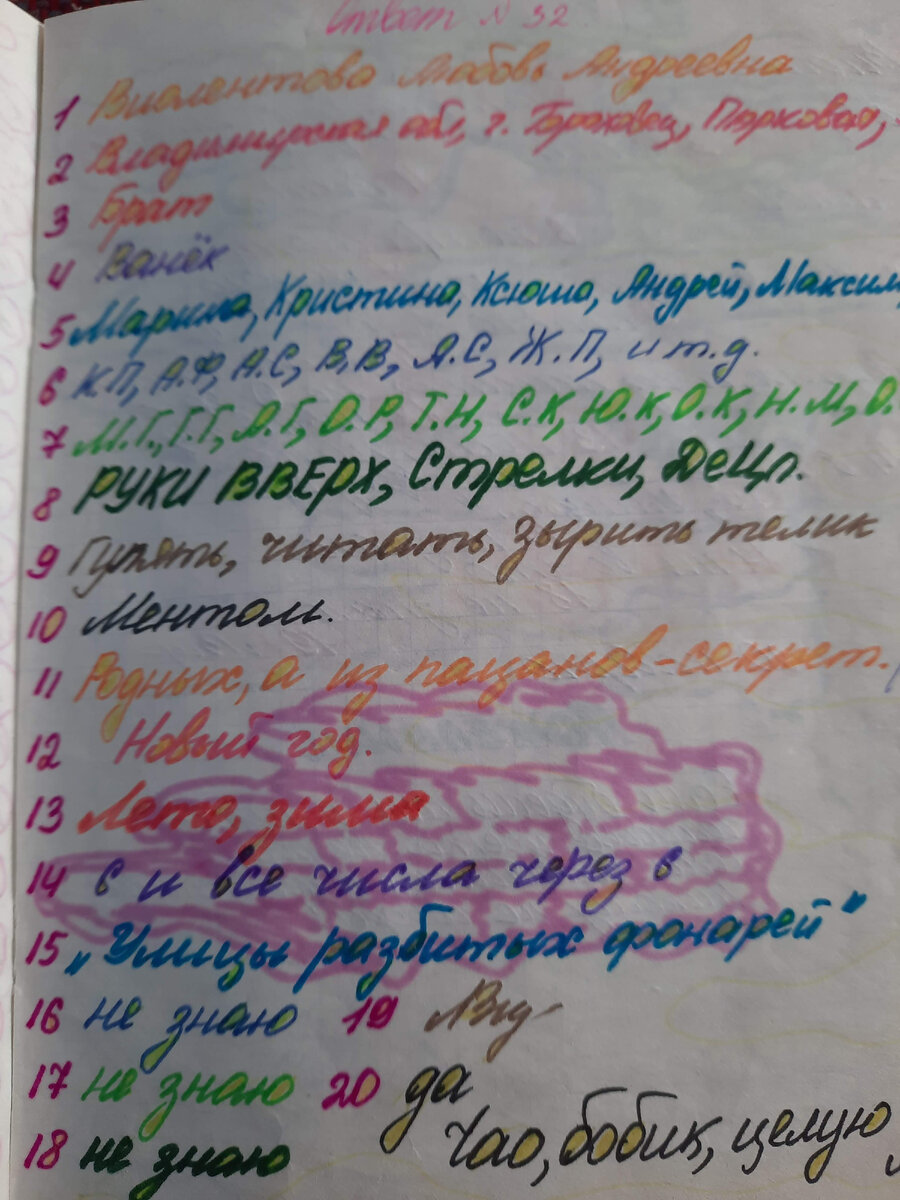 Ответ N 32
1 Виолентова Любовь Андреевна
2 Владимирская обл, г. Гороховец, Парковая,
3 Брат
4 Ванёк
5 Марина, Кристина, Ксюша, Андрей, Максим,
6 К.П, А.Ф, А.С, В.В, Я.С, Ж.П, и т.д.
7 М.Г., Г.Г, Я.Г, О.Р, Т.Н, С.К, Ю.К, О.К, Н.М, О.
8 РУКИ ВВЕРХ, Стрелки, ДеЦл.
9 Гулять, читать, зырить телик
10 Ментол.
11 Родных, а из пацанов-секрет.
12 Новый год.
13 Лето, зима
14 6 и все числа через 6
15 „Улицы разбитых фонарей"
16 не знаю 19
17 не знаю 20 да
18 не знаю Чао, бобик, целую